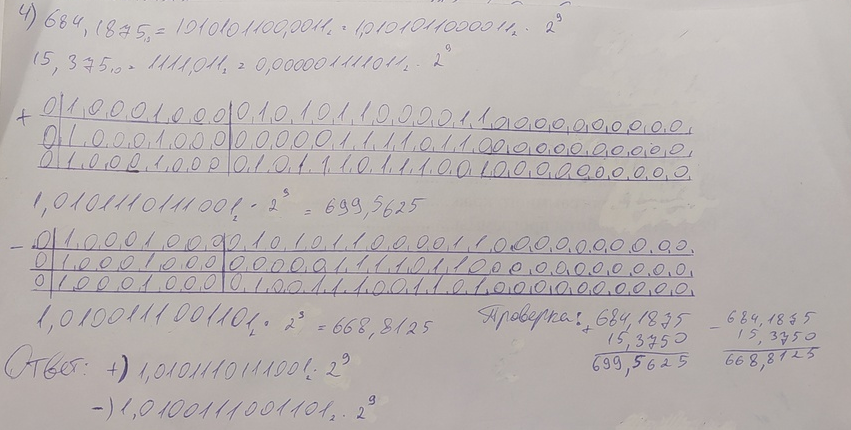 4) 684,1875₁₀ = 1010101100,0011₂ = 1,0101011000011₂ · 2⁹
15,375₁₀ = 1111,011₂ = 0,000001111011₂ · 2⁹
+ 0|1.0.0.0.1.0.0.0|0.1.0.1.0.1.1.0.0.0.0.1.1.0.0.0.0.0.0.0.0.0.0.
0|1.0.0.0.1.0.0.0|0.0.0.0.0.1.1.1.1.0.1.1.0.0.0.0.0.0.0.0.0.0.0.
0|1.0.0.0.1.0.0.0|0.1.0.1.1.1.0.1.1.1.0.0.1.0.0.0.0.0.0.0.0.0.0.
1,0101110111001₂ · 2⁹ = 699,5625
- 0|1.0.0.0.1.0.0.0|0.1.0.1.0.1.1.0.0.0.0.1.1.0.0.0.0.0.0.0.0.0.0.
0|1.0.0.0.1.0.0.0|0.0.0.0.0.1.1.1.1.0.1.1.0.0.0.0.0.0.0.0.0.0.0.
0|1.0.0.0.1.0.0.0|0.1.0.0.1.1.1.0.0.1.1.0.1.0.0.0.0.0.0.0.0.0.0.
1,0100111001101₂ · 2⁹ = 668,8125
Проверка: + 684,1875 - 684,1875
15,3750 15,3750
699,5625 668,8125
Ответ: +) 1,0101110111001₂ · 2⁹
-) 1,0100111001101₂ · 2⁹